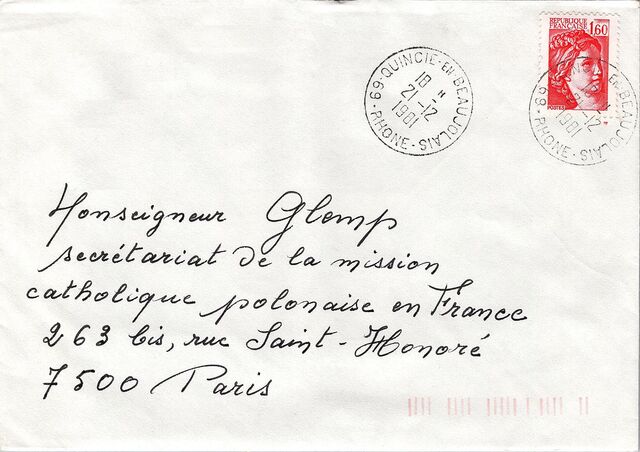 RÉPUBLIQUE
FRANÇAISE 1,60
POSTES
69-QUINCIE-EN-BEAUJOLAIS
18 H
21-12
1981
-RHONE-
69-QUINCIE-EN-BEAUJOLAIS
18 H
21-12
1981
-RHONE-
Monseigneur Glemp
secrétariat de la mission
catholique polonaise en France
263 bis, rue Saint-Honoré
7500 Paris